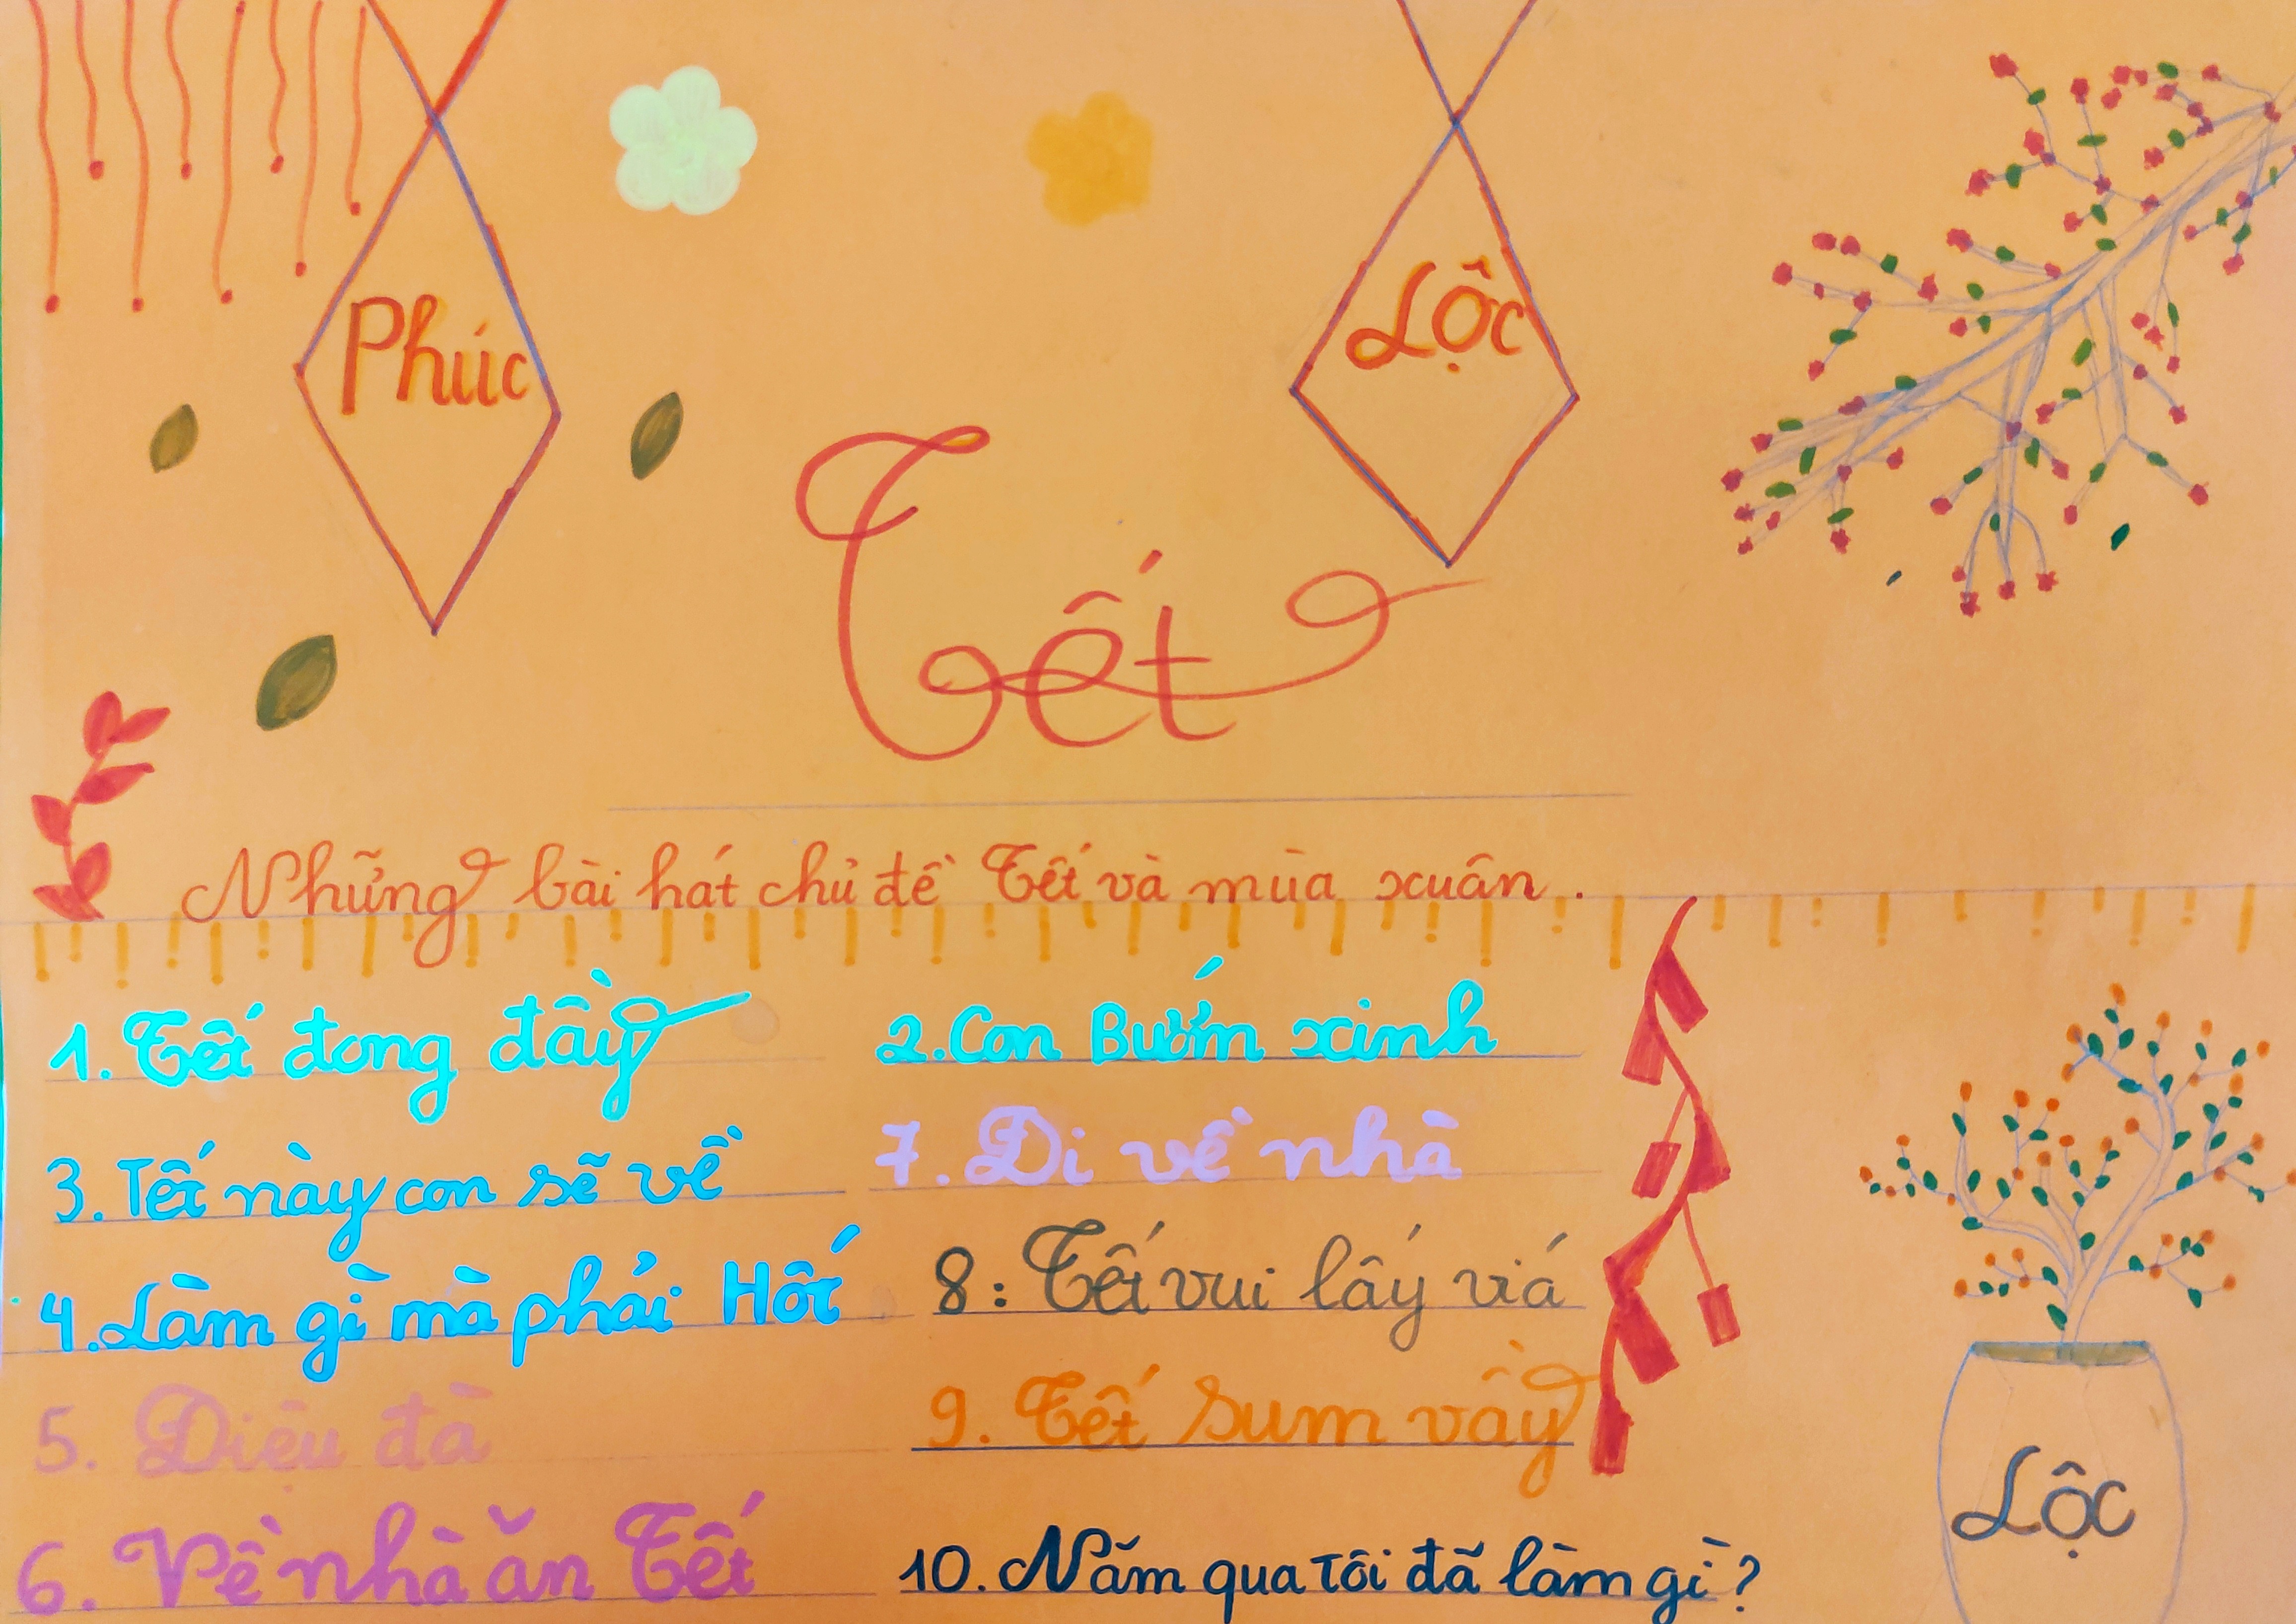 Phúc
Lộc
Tết
Những bài hát chủ đề Tết và mùa xuân.
1. Tết đong đầy
2. Con Bướm xinh
3. Tết này con sẽ về
7. Đi về nhà
4. Làm gì mà phải Hốt
8: Tết vui lấy viá
5. Diệu đà
9. Tết sum vầy
6. Về nhà ăn Tết
10. Năm qua tôi đã làm gì?
Lộc